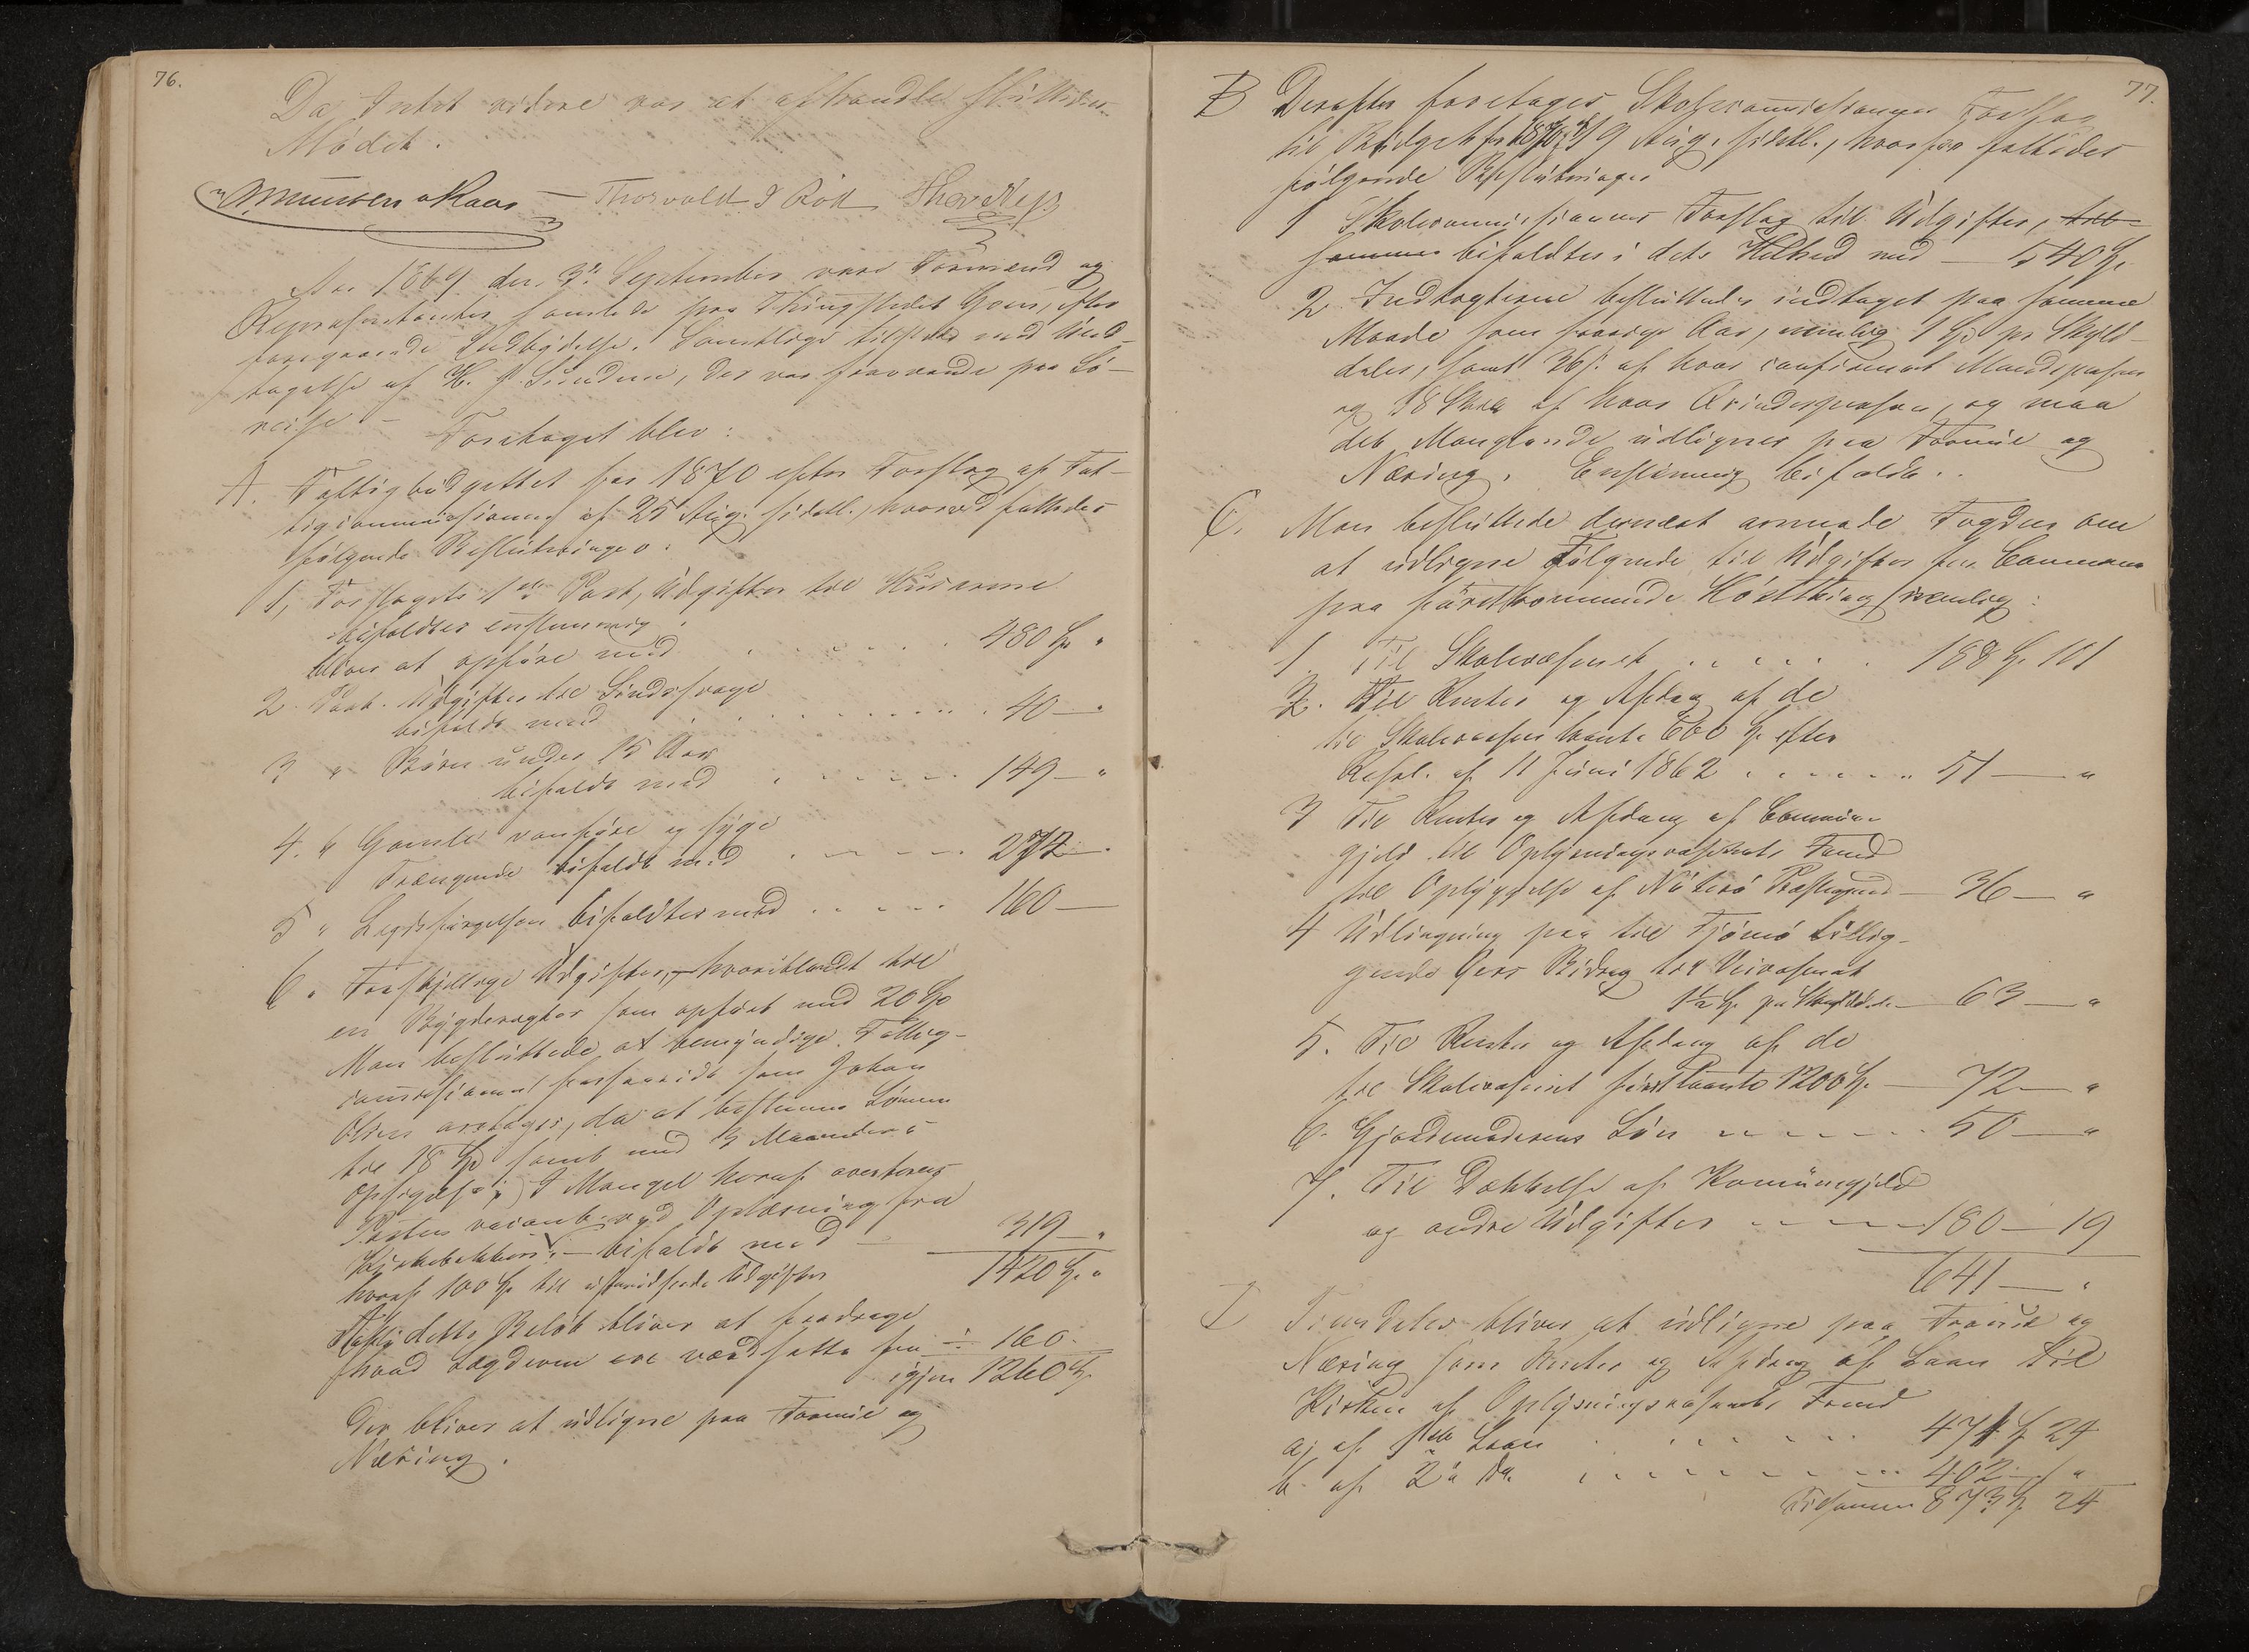 76.
Da Intet videre var at afhandle sluttedes
Mødet.
Thorvald J Röd
Aar 1869 den 3die September vare Formænd og
Repræsentanter samlede paa Thingstedet, efter
foregaaende Indbydelse. Samtlige tilstede med Und-
tagelse af H. Sundene, der var fraværende paa Sö-
reise - Foretaget blev:
A. Fattigbudgettet for 1870 efter Forslag af Fat-
tigcommissionen af 25 Aug. sidstl., hvorved fattedes
følgende Beslutninger:
1, Forslagets 1ste Post, Udgifter til Husarme
bifaldtes enstemmig,
bliver at opføre med . . . . . . 480 Sp "
2 Post. Udgifter til Sindssvage
bifaldt med . . . . . . 40 — "
3 " Börn under 15 Aar
bifaldt med . . . . . . 149 — "
4. " Gamle vanføre og syge
Trængende bifaldt med . . . . 272 — "
5 " Lægdsforsørgelsen bifaldtes med . . . . . 160 —
6. Forskjellige Udgifter, hvoriblandt til
en Bygdevægter som opført med 20 Sp
Man besluttede at bemyndige Fattig-
commissionen forsaavidt som Johan
Olsen antages, da at bestemme Lönnen
til 18 Sp samt med 3 Maaneders
Opsigelse; I Mangel heraf averteres
Posten vacant ved Oplæsning fra
Kirkebakken. — bifaldt med — 319 — "
hvoraf 100 Sp til uforudseede Udgifter 1420 Sp "
dette Beløb bliver at fradrage
hvad Lægderne ere værdsatte for ÷ 160.
igjen 1260 Sp
Der bliver at udligne paa Formue og
Næring.
77.
B Derefter foretages Skolecommissionens Forslag
til Budget for 1870 af 9 Aug. sidstl., hvorfor fattedes
følgende Beslutninger
1 Skolecommissionens Forslag til Udgifter,
bifaldtes i dets Helhed med — 540 Sp.
2. Indtægterne besluttedes indtaget paa samme
Maade som forrige Aar, nemlig 1 Sp pr Skyld-
daler, samt 36 s. af hver confirmeret Mandsperson
og 18 Skill af hver Qvindesperson, og maa
det Manglende udlignes paa Formue og
Næring. Enstemmig bifaldt.
C. Man besluttede dernæst anmode Fogden om
at udligne Følgende til Udgifter for Communen
paa førstkommende Høstthing, nemlig:
1. Til Skolevæsenet . . . . . . 188 Sp 101
2. Til Renter og Afdrag af de
til Skolevæsenet laante 600 Sp efter
Resol. af 11 Juni 1862 . . . . . . 51 — "
3 Til Renter og Afdrag af Commune-
gjeld til Oplysningsvæsenets Fond
til Opbyggelse af Nøterø Præstegaard — 36 — "
4 Udligning paa til Tjømø tillig-
gende Øers Bidrag til Veivæsenet
1½ Sp pr Skyldd. — 63 — "
5. Til Renter og Afdrag af de
til Skolevæsenet først laante 1200 Sp. — 72 — "
6. Gjordemoderens Løn . . . . . . 50 — "
7. Til Dækkelse af Kommunegjeld
og andre Udgifter . . . . . 180 — 19
641 — "
bliver at udligne paa Formue og
Næring som Renter og Afdrag af Laan til
Kirken af Oplysningsvæsenets Fond
a, af 1ste Laan . . . . . . . 471 Sp 24
b. af 2det Do. . . . . . . . . 402 — "
Tilsammen 873 Sp 24